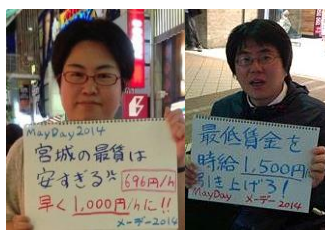 MayDay2014
宮城の最賃は
安すぎる
696円/h
早く1,000円/hに!!
メーデー2014
最低賃金を
時給1,500円に
引き上げろ!
MayDay メーデー2014